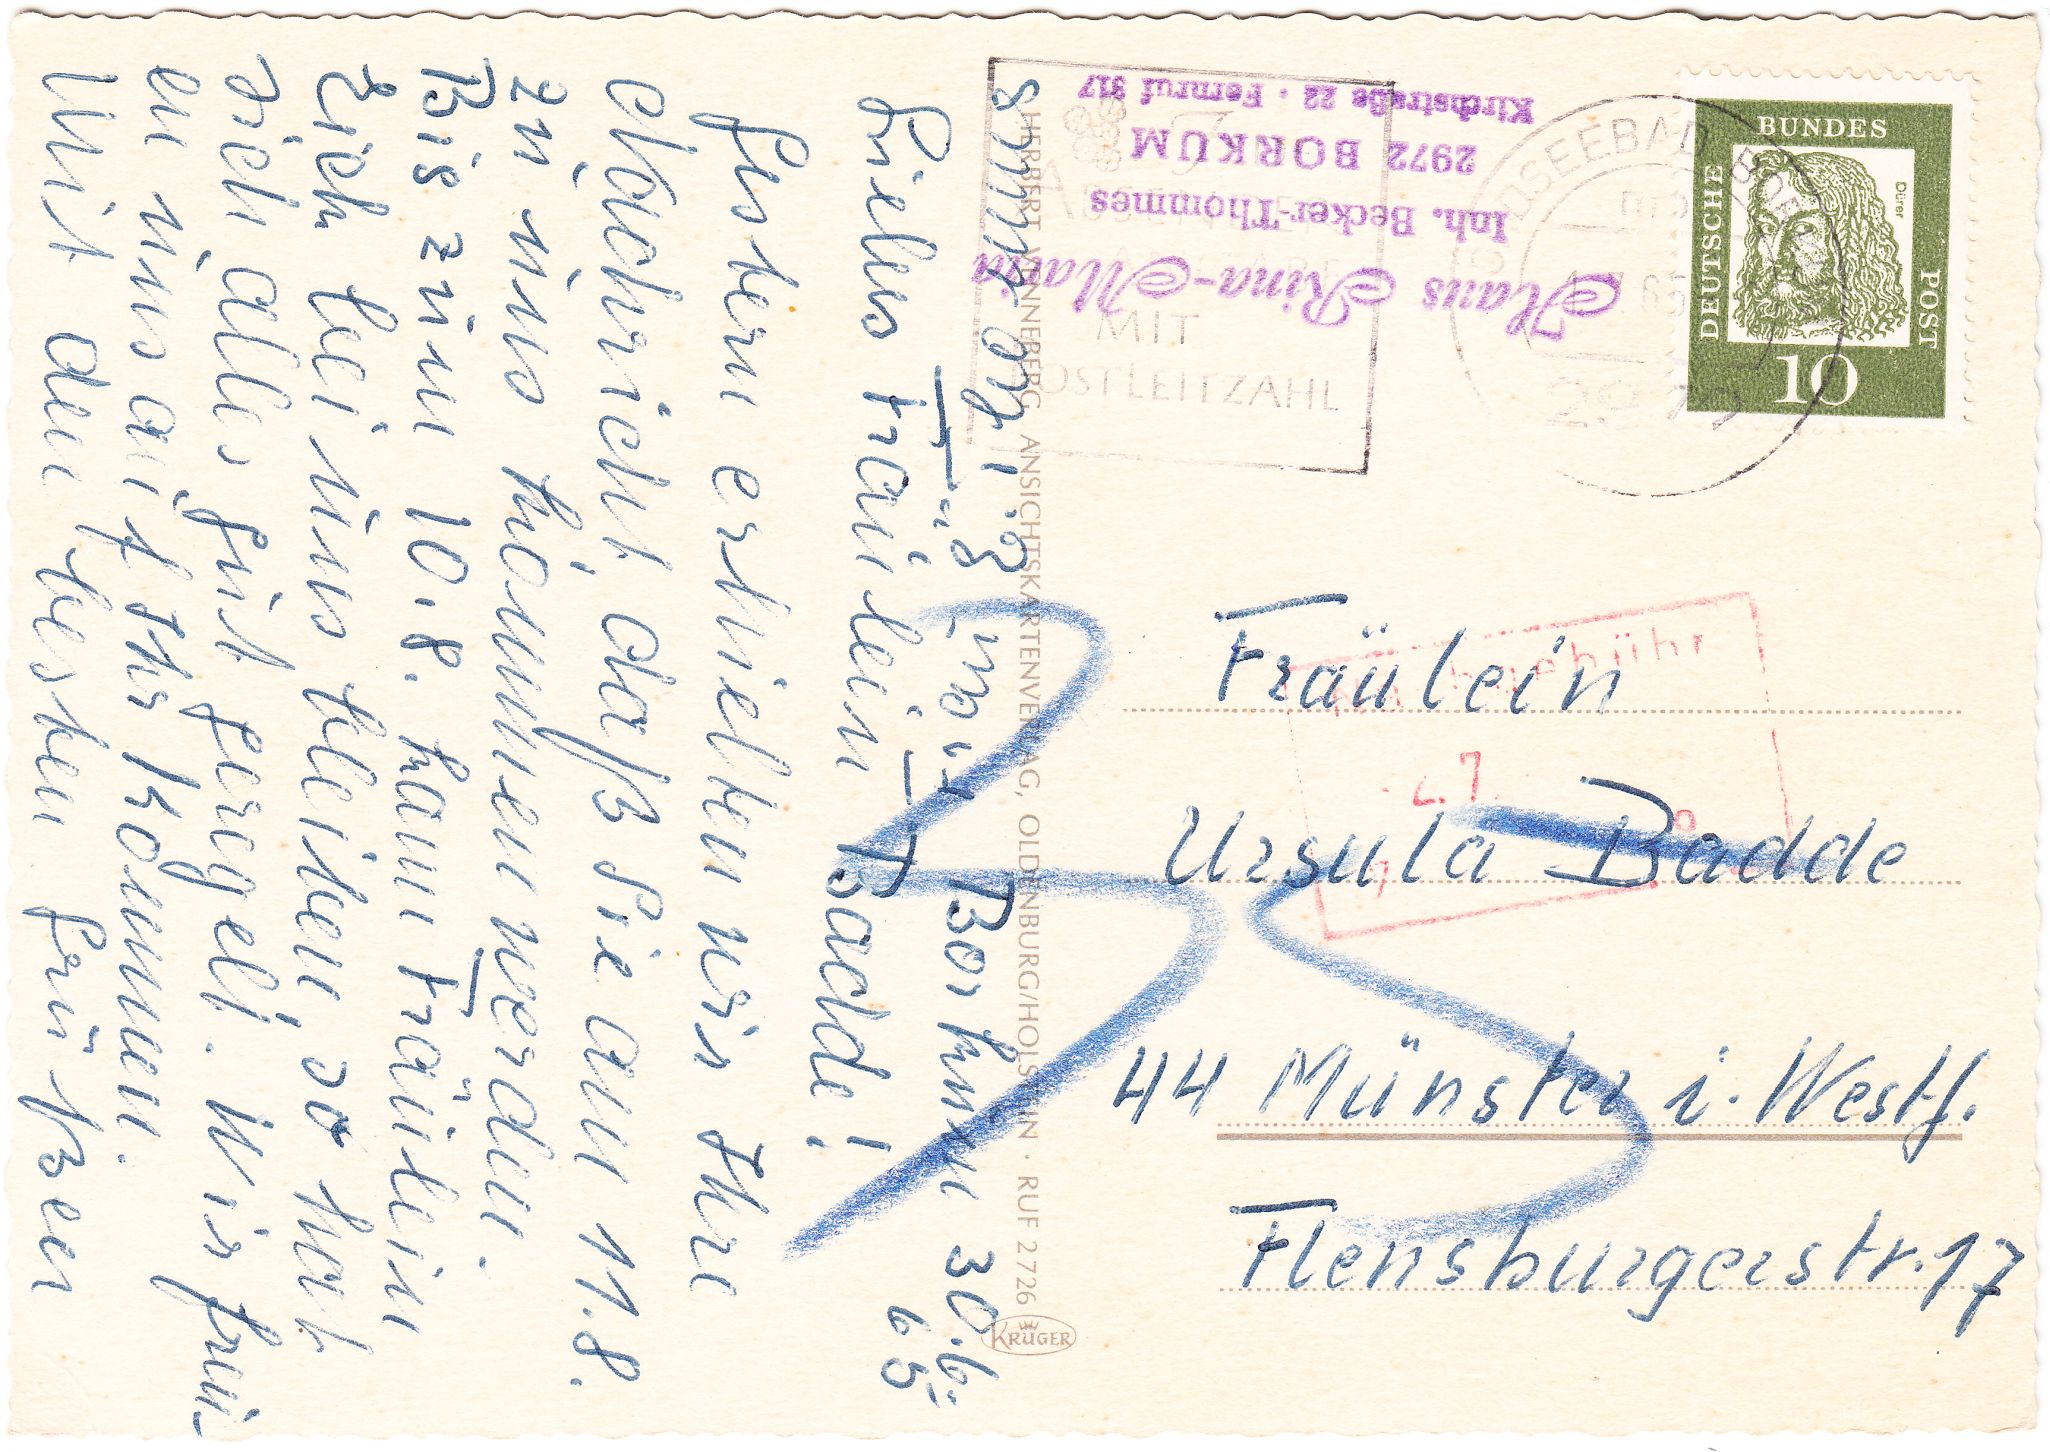 Borkum 30.6.
65
Liebes Fräulein Badde!
Gestern erhielten wir Ihre
Nachricht, daß Sie am 11.8.
zu uns kommen werden.
Bis zum 10.8. kann Fräulein
Eich bei uns bleiben, so hat
sich alles gut geregelt. Wir freu-
en uns auf Ihr Kommen.
Mit den besten Grüßen
HERBERT WENNEBERG ANSICHTSKARTENVERLAG, OLDENBURG/HOLSTEIN · RUF 2726
KRÜGER
Haus Rina-Maria
Inh. Becker-Thommes
2972 BORKUM
Kirchstraße 22 · Fernruf 317
MIT
POSTLEITZAHL
NORDSEEBAD BORKUM
2972
DEUTSCHE
BUNDES
POST
Dürer
10
Nachgebühr
Fräulein
Ursula Badde
44 Münster i. Westf.
Flensburgerstr. 17